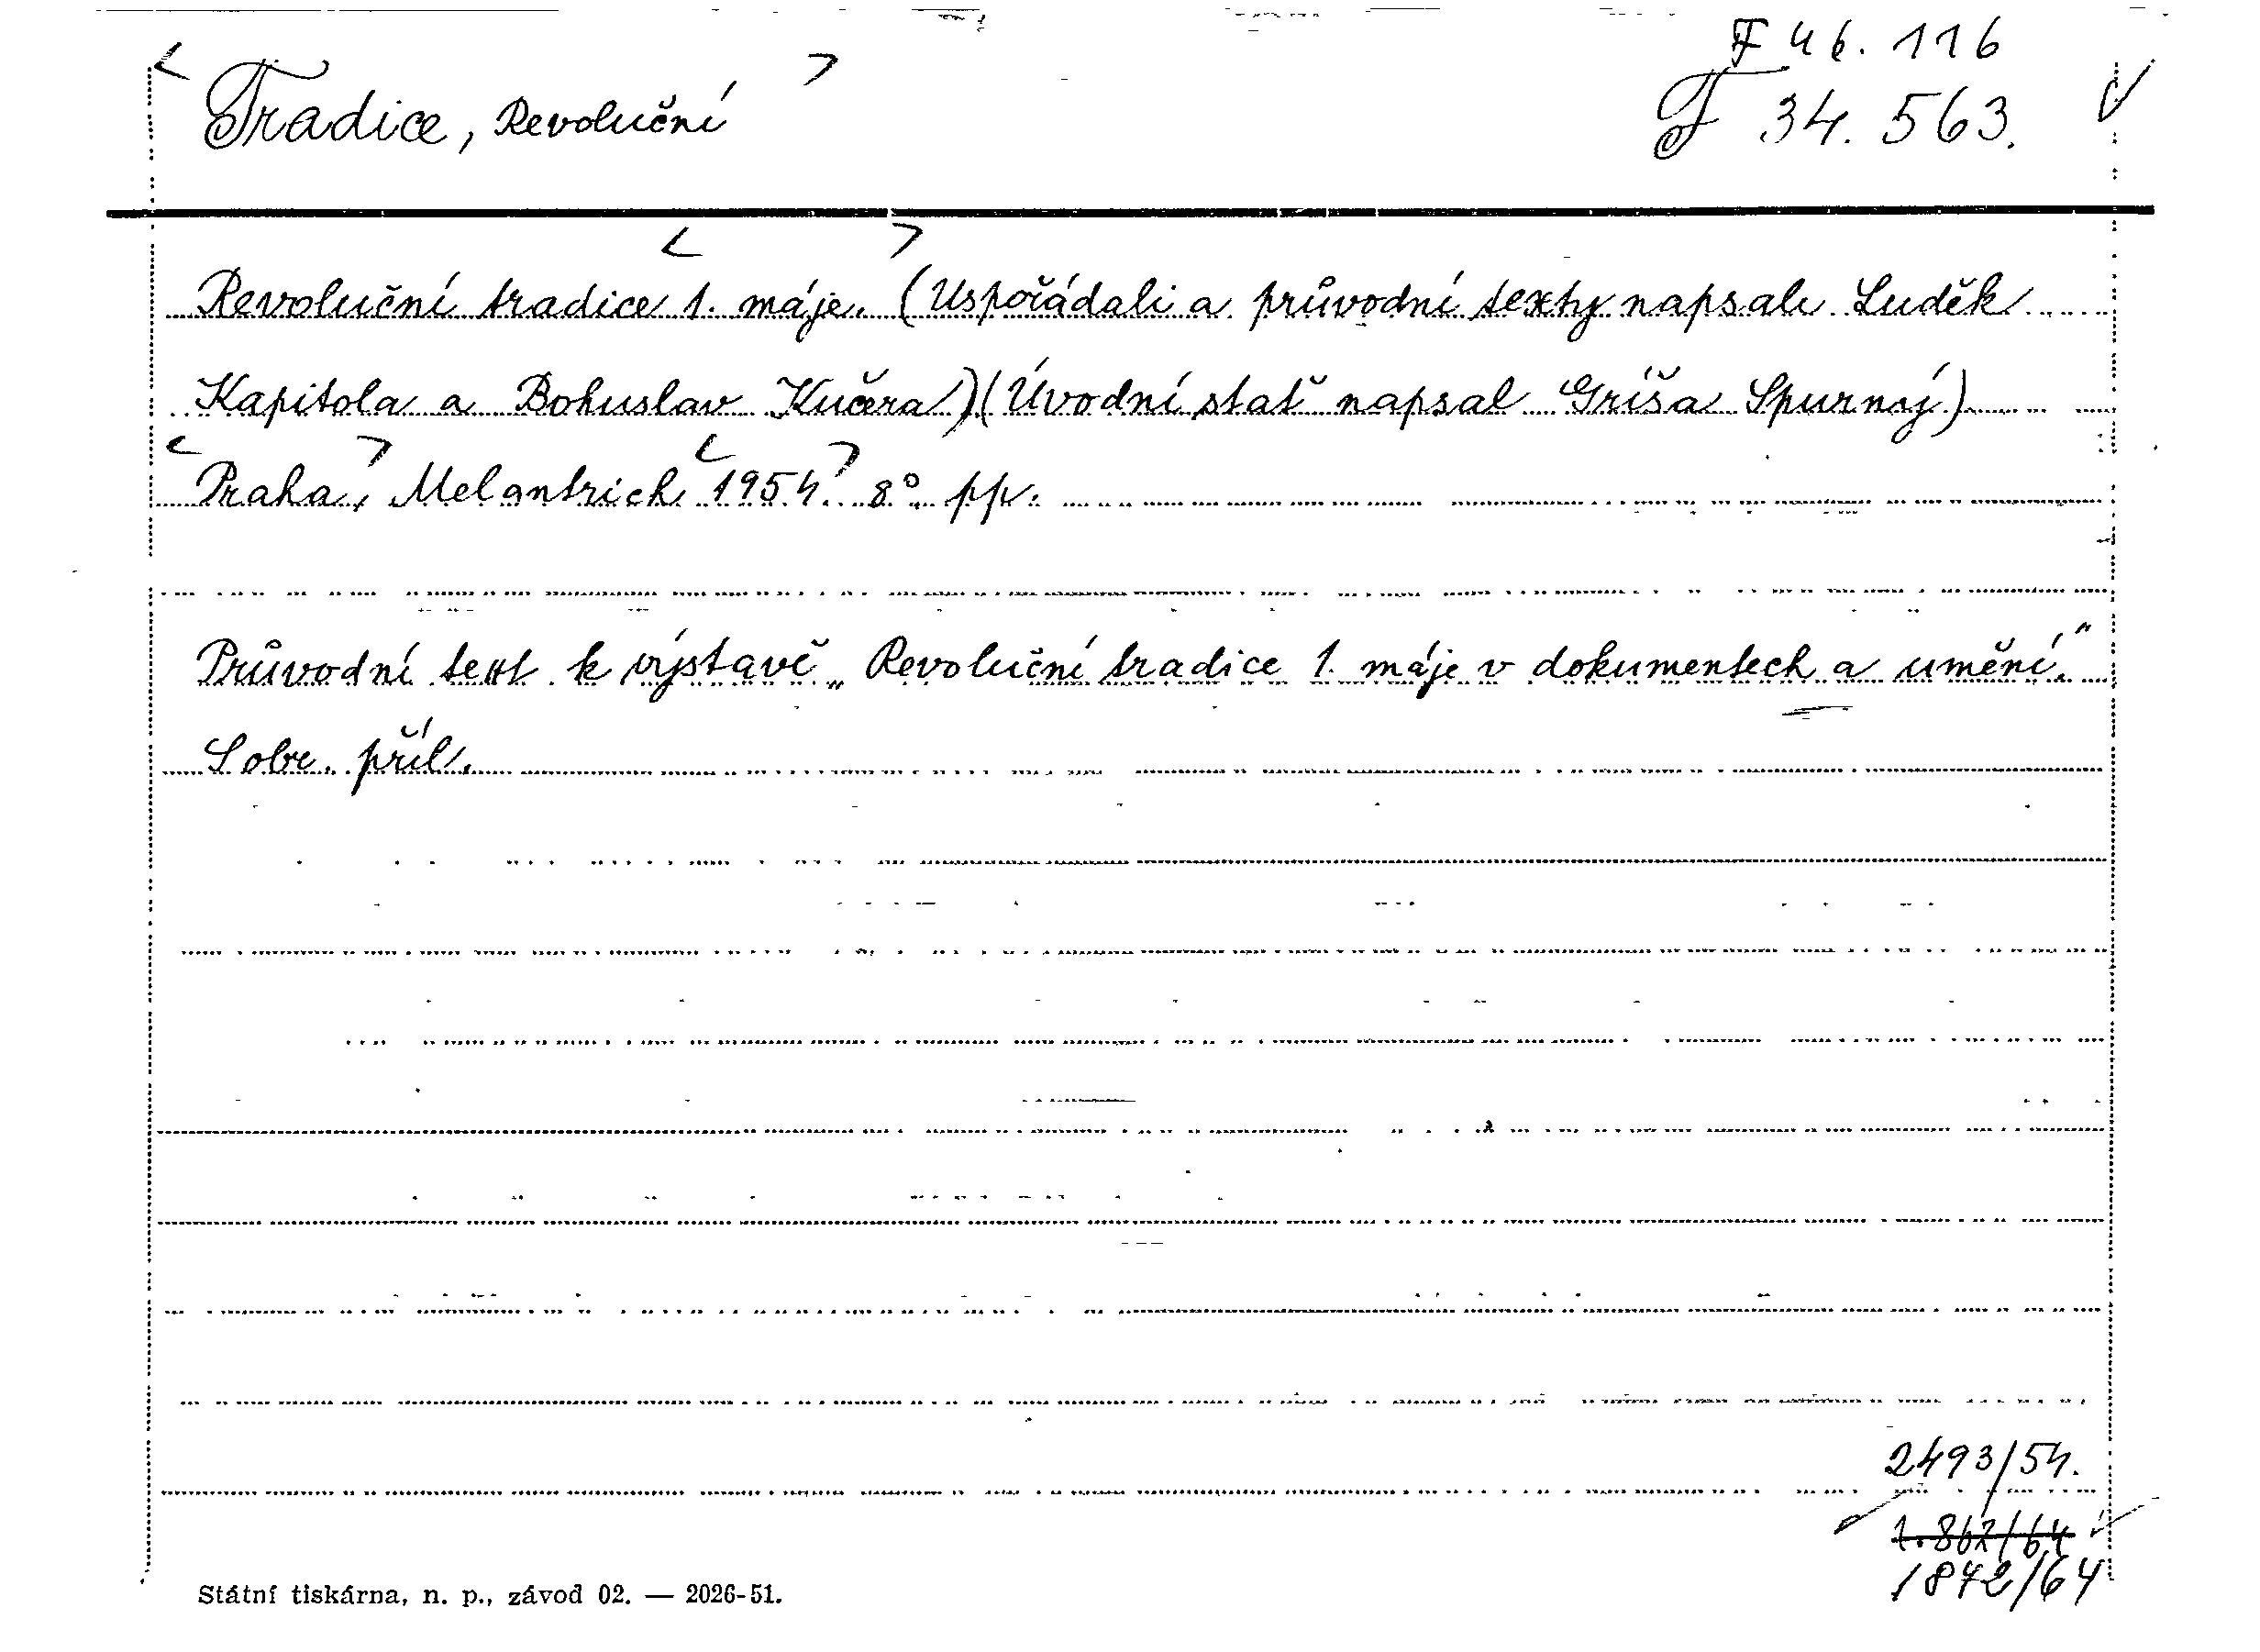 F 46. 116
Tradice, Revoluční
F 34. 563.
Revoluční tradice 1. máje. (Uspořádali a průvodní texty napsali Luděk
Kapitola a Bohuslav Kučera) (Úvodní stať napsal Gríša Spurný)
Praha, Melantrich 1954. 8° pp.
Průvodní text k výstavě „Revoluční tradice 1. máje v dokumentech a umění."
S obr. příl.
2493/54.
1842/64
Státní tiskárna, n. p., závod 02. — 2026-51.